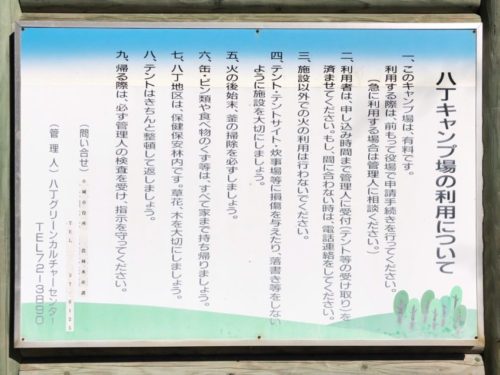 八丁キャンプ場の利用について
一、このキャンプ場は、有料です。
利用する際は、前もって役場で申請手続きを行ってください。
（急に利用する場合は管理人に相談ください。）
二、利用者は、申し込み時間まで管理人に受付（テント等の受け取り）を
済ませてください。もし、間に合わない時は、電話連絡をしてください。
三、施設以外での火の利用は行わないでください。
四、テント・テントサイト・炊事場等に損傷を与えたり、落書き等をしない
ように施設を大切にしましょう。
五、火の後始末、釜の掃除を必ずしましょう。
六、缶・ビン類や食べ物のくず等は、すべて家まで持ち帰りましょう。
七、八丁地区は、保健保安林内です。草花、木を大切にしましょう。
八、テントはきちんと整頓して返しましょう。
九、帰る際は、必ず管理人の検査を受け、指示を守ってください。
（問い合せ）小城市役所 農林水産課
TEL
（管理人）八丁グリーンカルチャーセンター
TEL72-3890